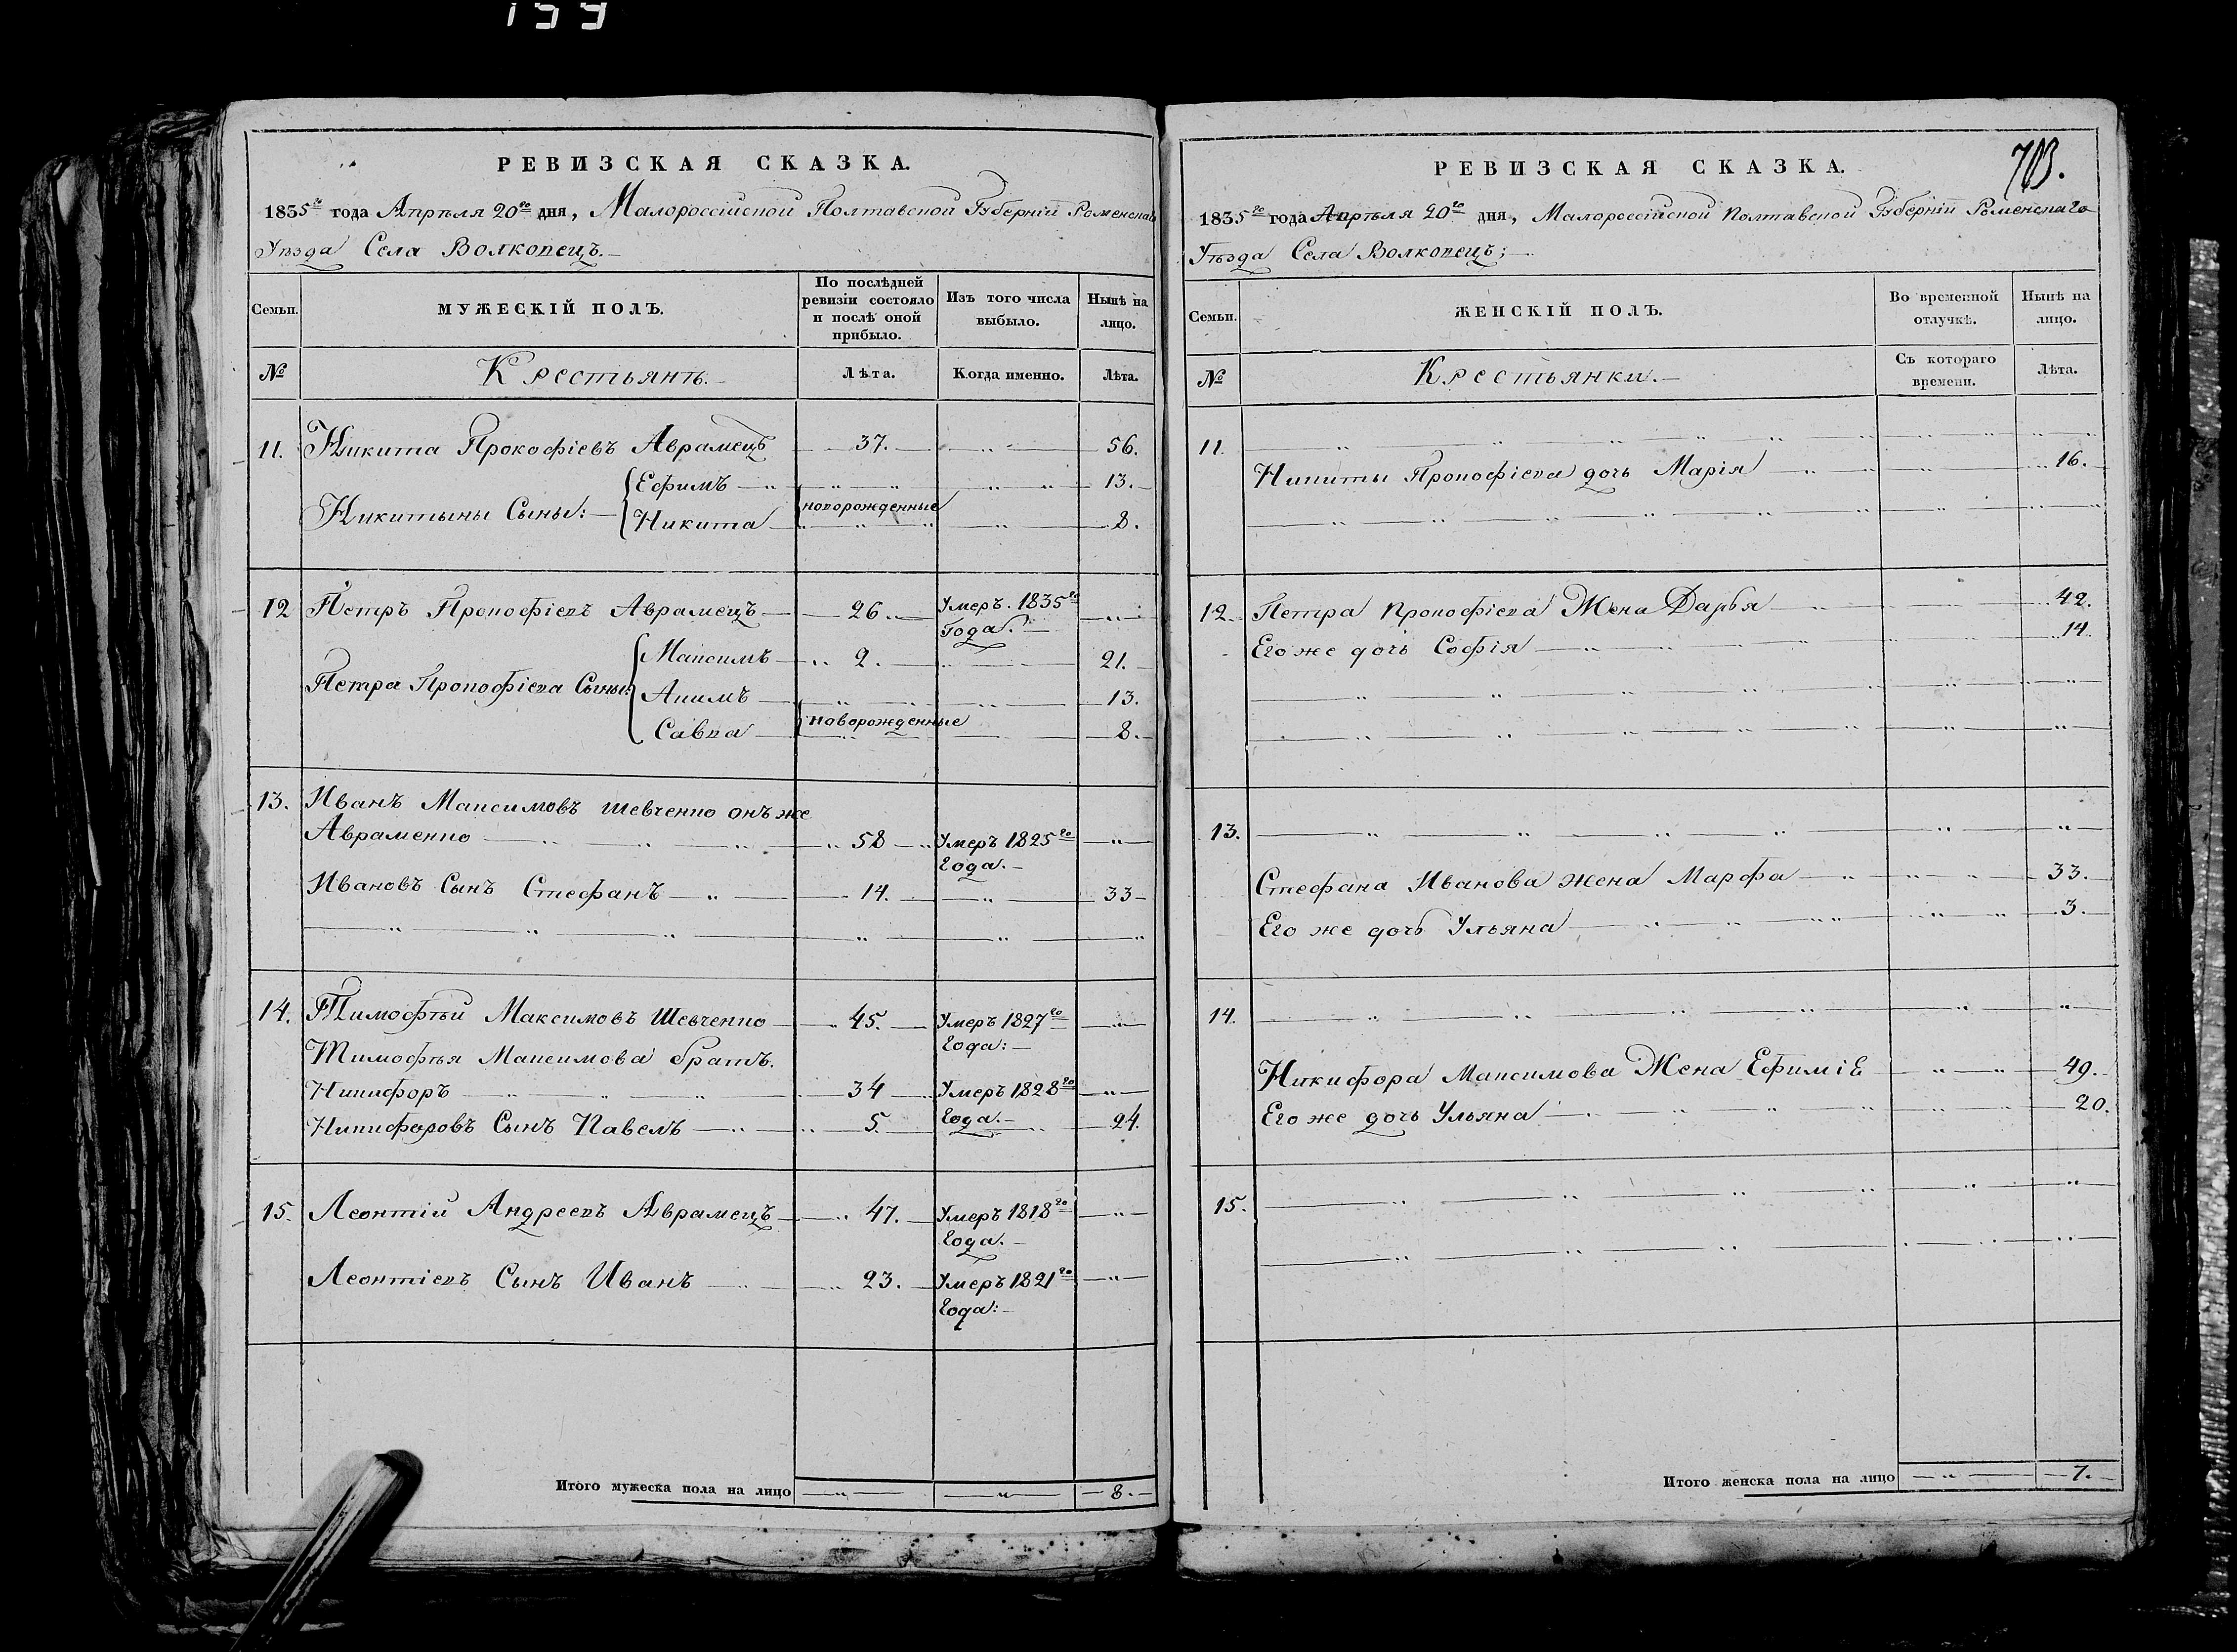 РЕВИЗСКАЯ СКАЗКА.
1835го года Апрѣля 20го дня, Малороссійской Полтавской Губерніи Роменскаго
Уѣзда Села Волковецъ.
Семьи. МУЖЕСКІЙ ПОЛЪ. По послѣдней ревизіи состояло и послѣ оной прибыло. Изъ того числа выбыло. Нынѣ на лицо.
№ Крестьянъ. Лѣта. Когда именно. Лѣта.
11. Никита Прокофіевъ Аврамецъ 37. 56.
Ефимъ 13.
Никитыны Сыны: Никита новорожденные 8.
12 Петръ Прокофіевъ Аврамецъ 26. Умеръ. 1835го
Года.
Максимъ 2. 21.
Петра Прокофіева Сыны: Акимъ 13.
Савва новорожденные 8.
13. Иванъ Максимовъ Шевченко онъ же
Авраменко 58 Умеръ 1825го
Года.
Ивановъ Сынъ Стефанъ 14. 33
14. Тимофѣй Максимовъ Шевченко 45. Умеръ 1827го
Года:
Тимофѣя Максимова братъ.
Никифоръ 34 Умеръ 1828го
Года.
Никифоровъ Сынъ Павелъ 5. 24.
15. Леонтій Андреевъ Аврамецъ 47. Умеръ 1818го
Года.
Леонтіевъ Сынъ Иванъ 23. Умеръ 1821го
Года:
Итого мужеска пола на лицо 8.
703.
РЕВИЗСКАЯ СКАЗКА.
1835го года Апрѣля 20го дня, Малороссійской Полтавской Губерніи Роменскаго
Уѣзда Села Волковецъ;
Семьи. ЖЕНСКІЙ ПОЛЪ. Во временной отлучкѣ. Нынѣ на лицо.
№ Крестьянки. Съ котораго времени. Лѣта.
11.
Никиты Прокофіева дочь Марія 16.
12. Петра Прокофіева Жена Дарья 42.
Его же дочь Софія 14.
13.
Стефана Иванова жена Марфа 33.
Его же дочь Ульяна 3.
14.
Никифора Максимова Жена Ефимія 49.
Его же дочь Ульяна 20.
15.
Итого женска пола на лицо 7.